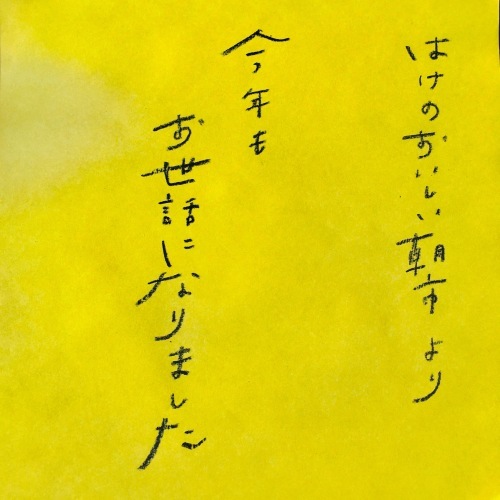 はけのおいしい朝市より
今年も
お世話になりました